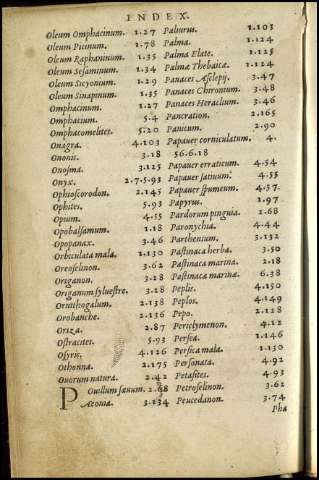 INDEX.
Oleum Omphacinum. 1.27
Oleum Picinum. 1.78
Oleum Raphaninum. 1.35
Oleum Sesaminum. 1.34
Oleum Sicyonium. 1.29
Oleum Sinapinum. 1.35
Omphacinum. 1.27
Omphacium. 5.4
Omphacomelites. 5.20
Onagra. 4.103
Ononis. 3.18
Onosma. 3.125
Onyx. 2.7.5.93
Ophioscorodon. 2.145
Ophites. 5.93
Opium. 4.55
Opobalsamum. 1.18
Opopanax. 3.46
Orbiculata mala. 1.130
Oreoselinon. 3.62
Origanon. 3.28
Origanum syluestre. 3.28
Ornithogalum. 2.138
Orobanche. 2.136
Oriza. 2.87
Ostracites. 5.93
Osyris. 4.126
Othonna. 2.175
Ouorum natura. 2.42
Ouillum sæuum. 2.68
PAeonia. 3.134
Paliurus. 1.103
Palma. 1.124
Palma Elate. 1.125
Palmæ Thebaicæ. 1.124
Panaces Æsclepij. 3.47
Panaces Chironium. 3.48
Panaces Heraclium. 3.46
Pancration. 2.165
Panicum. 2.90
Papauer corniculatum. 4.
56.6.18
Papauer erraticum. 4.54
Papauer satiuum. 4.55
Papauer spumeum. 4.57.
Papyrus. 1.97
Pardorum pinguia. 2.68
Paronychia. 4.44
Parthenium. 3.132
Pastinaca herba. 3.50
Pastinaca marina. 2.18
Pastinaca marinæ. 6.38
Peplis. 4.150
Peplos. 4.149
Pepo. 2.128
Periclymenon. 4.12
Persea. 1.146
Persica mala. 1.130
Personata. 4.92
Petasites. 4.93
Petroselinon. 3.62
Peucedanon. 3.74
Pha